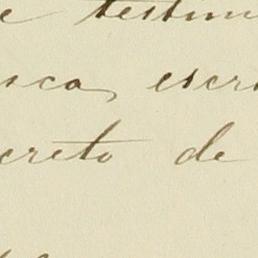 e testimo
sca, escri
creto de